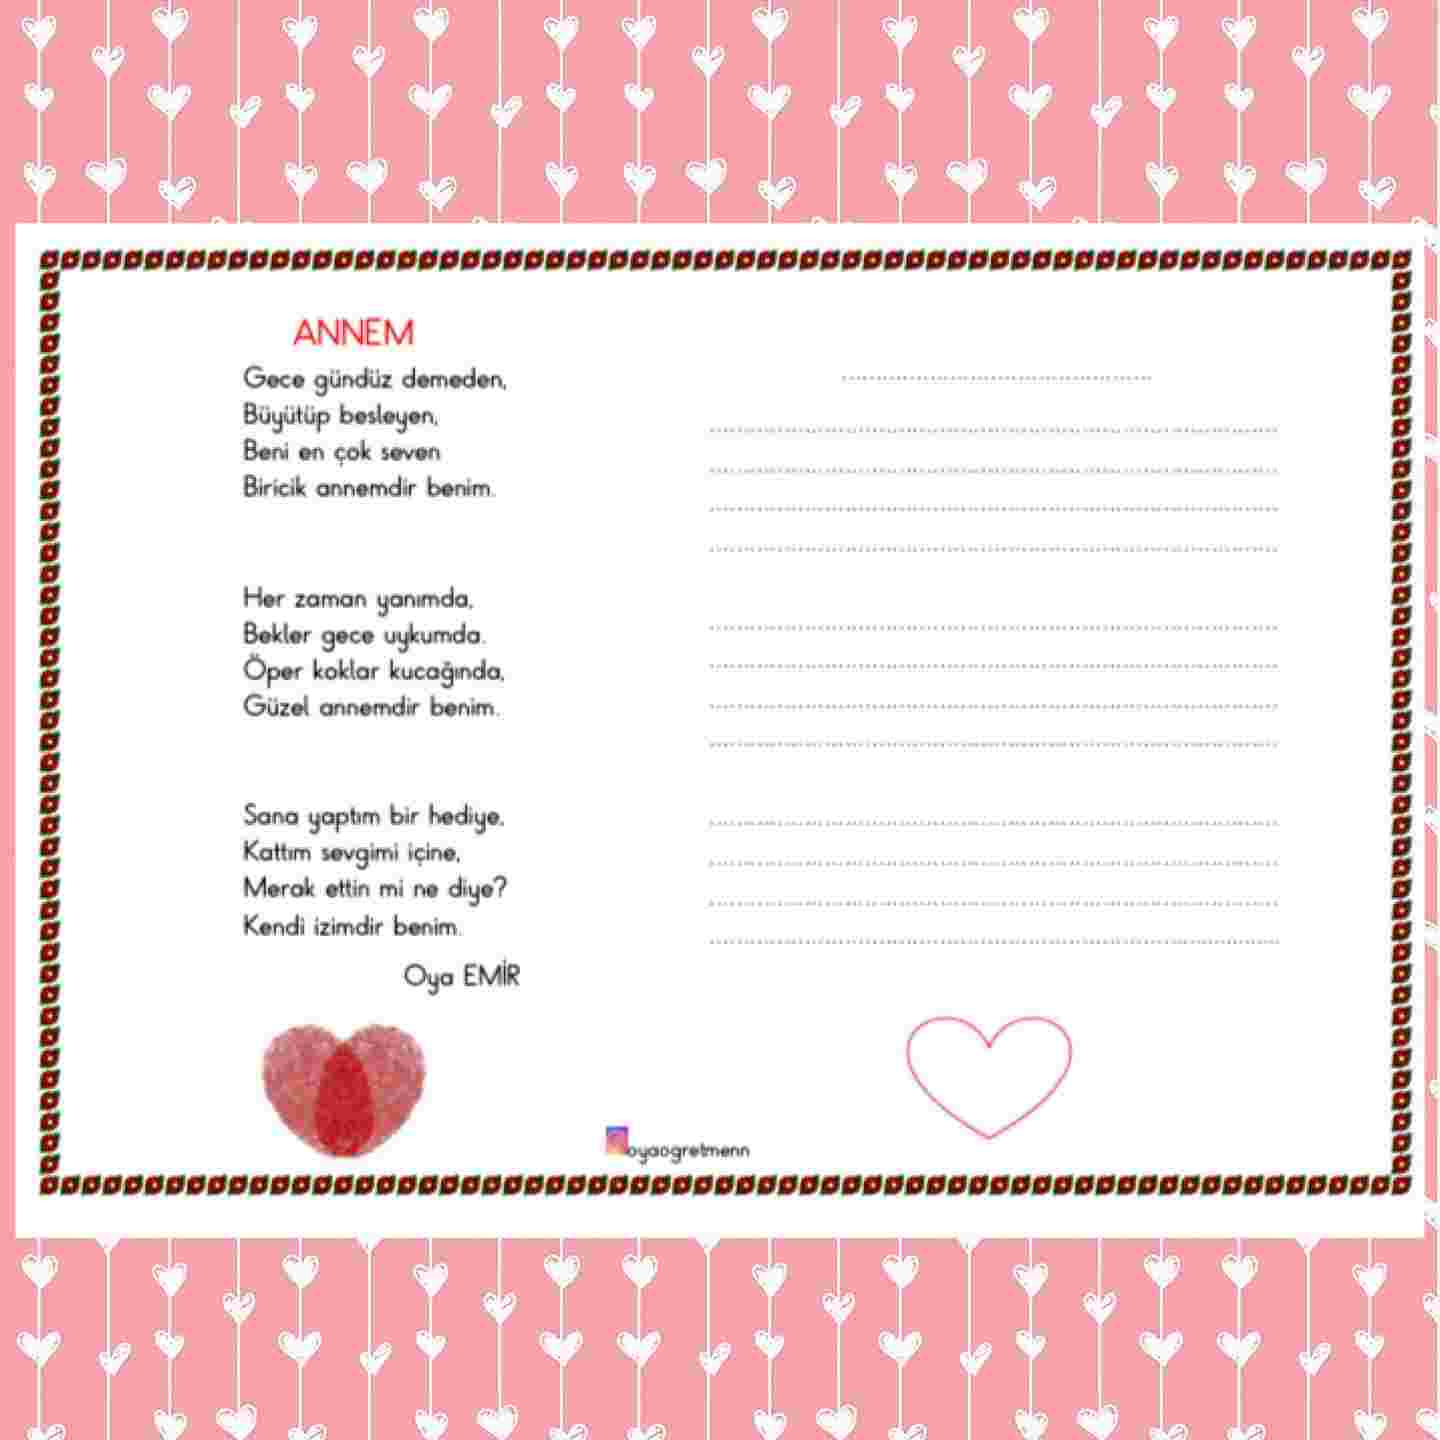 ANNEM
Gece gündüz demeden,
Büyütüp besleyen,
Beni en çok seven
Biricik annemdir benim.
Her zaman yanımda,
Bekler gece uykumda.
Öper koklar kucağında,
Güzel annemdir benim.
Sana yaptım bir hediye,
Kattım sevgimi içine,
Merak ettin mi ne diye?
Kendi izimdir benim.
Oya EMİR
oyaogretmenn